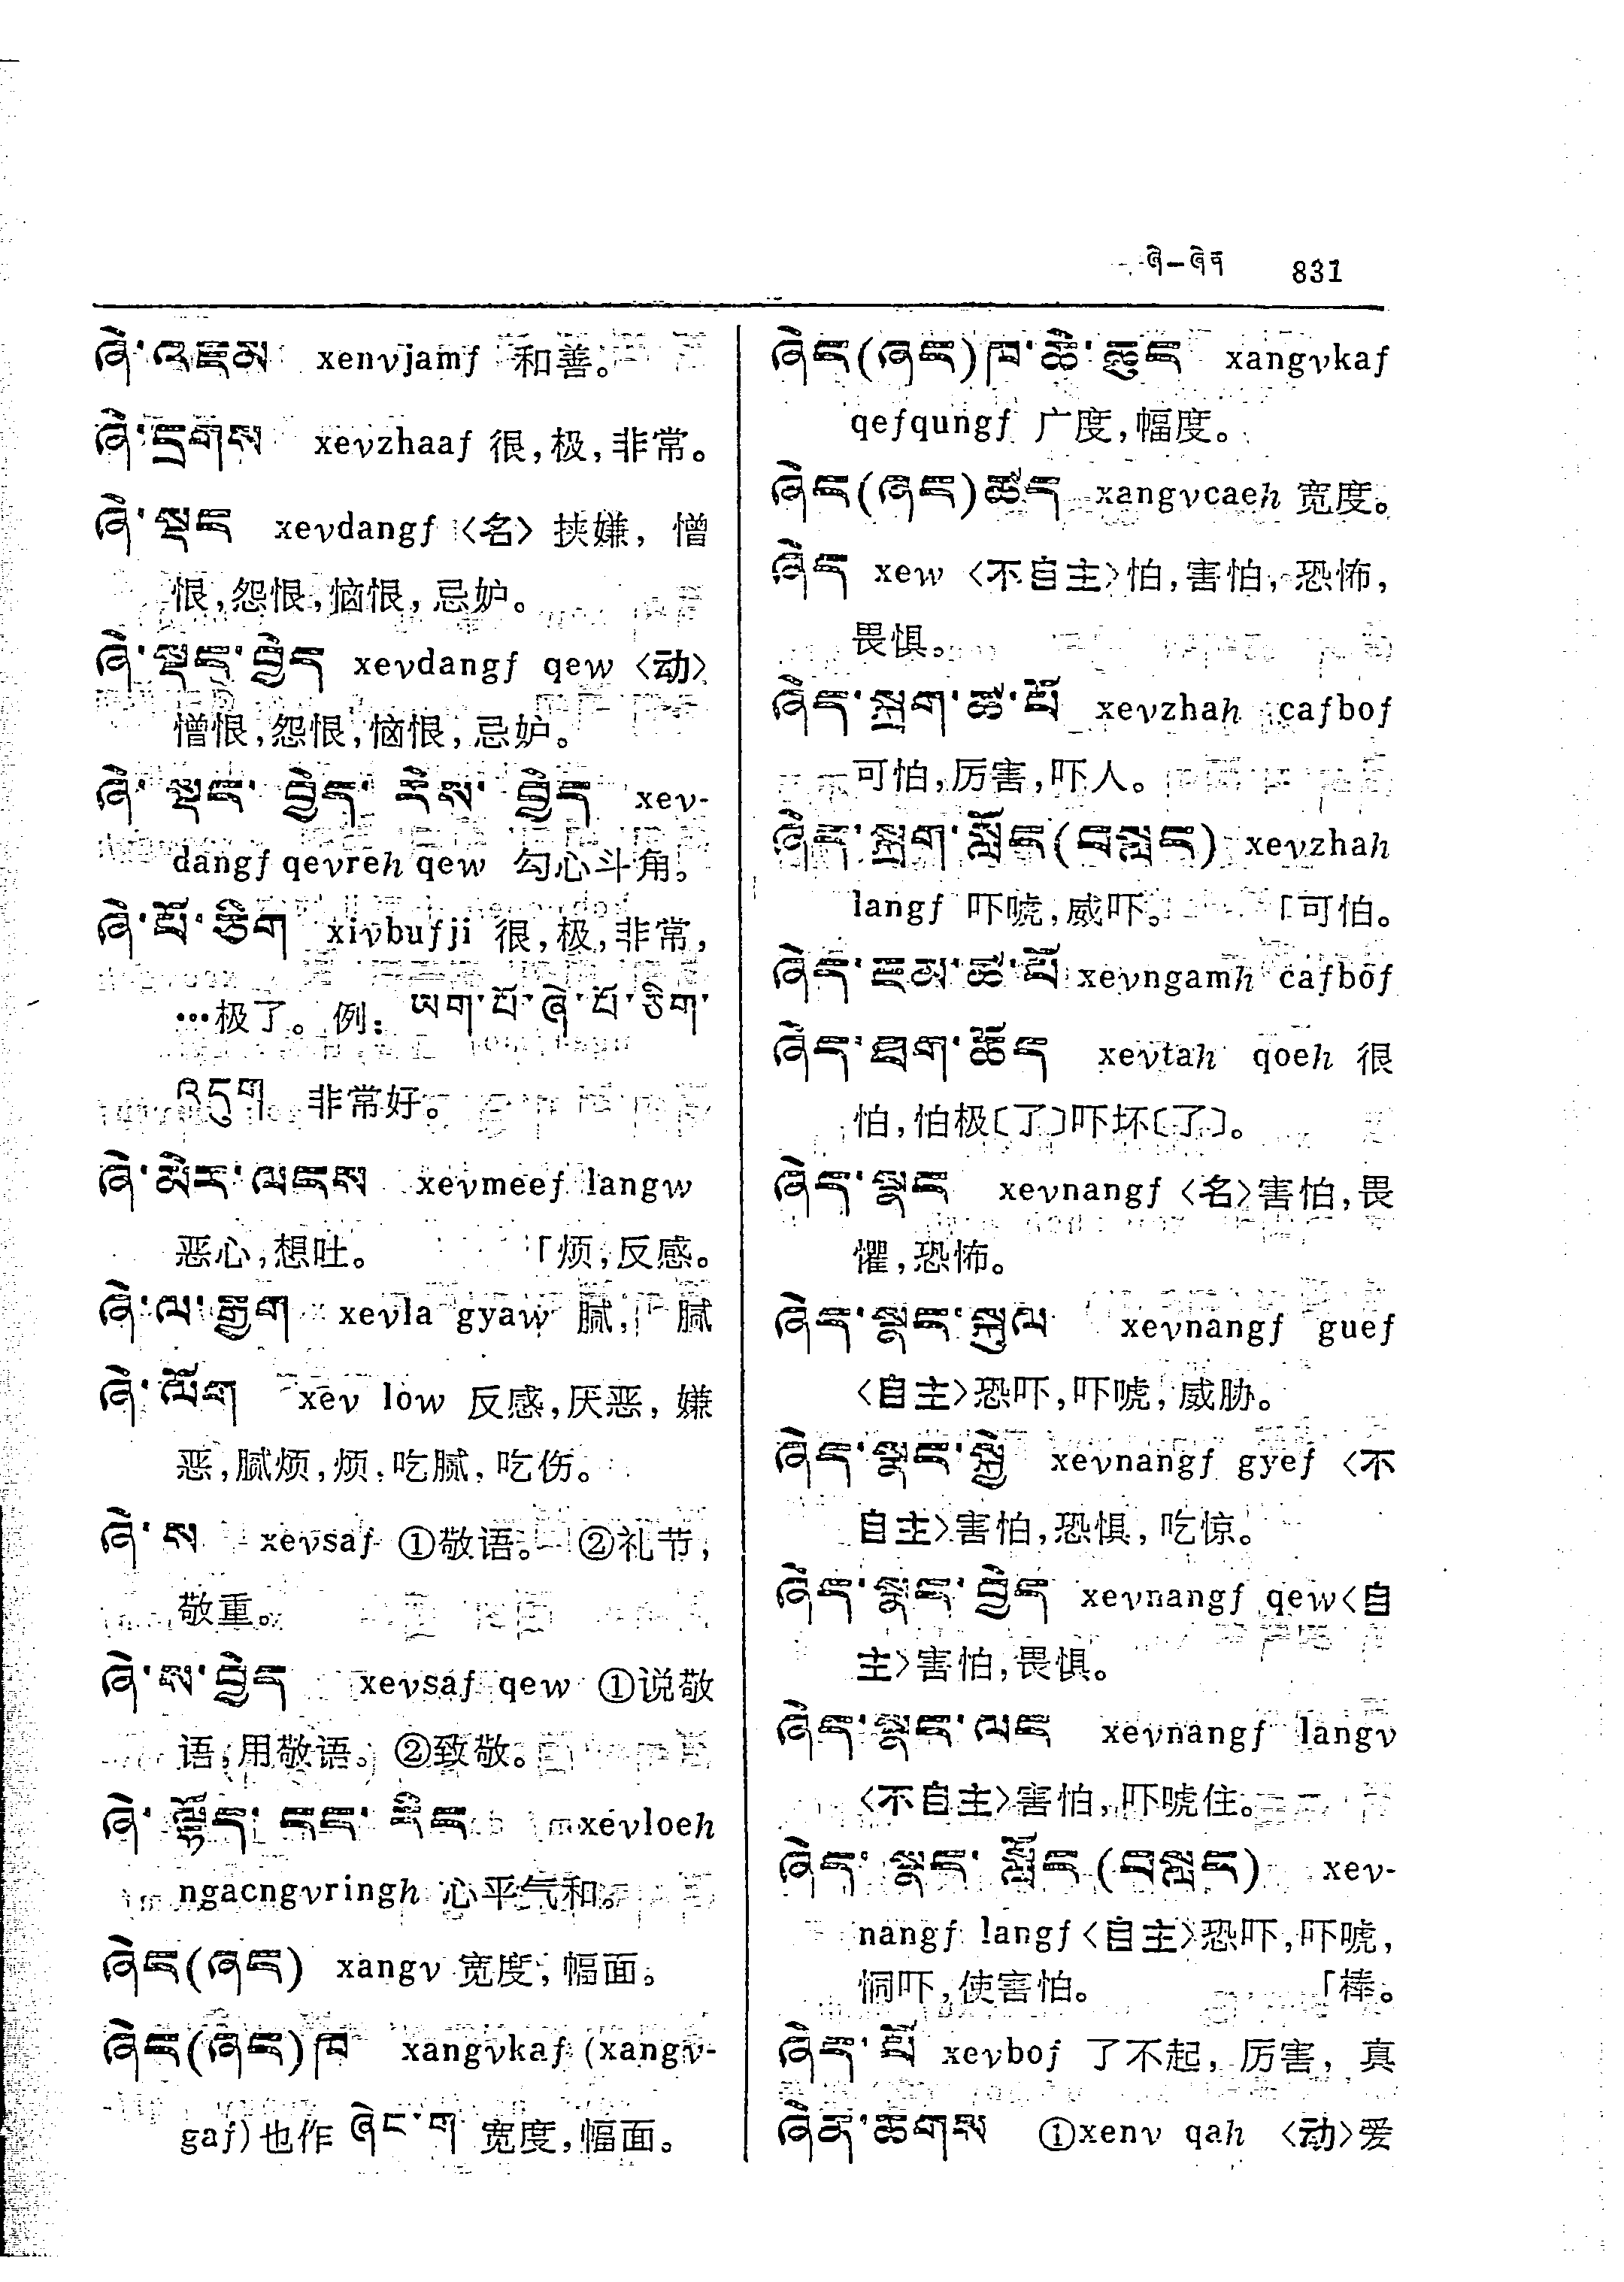 ཞེ—ཞེན 831
ཞེ་འཇམ xenvjamf 和善。
ཞེ་དྲགས xevzhaaf 很,极,非常。
ཞེ་སྡང xevdangf 〈名〉挟嫌, 憎
恨,怨恨,恼恨,忌妒。
ཞེ་སྡང་བྱེད xevdangf qew 〈动〉
憎恨,怨恨,恼恨,忌妒。
ཞེ་སྡང་བྱེད་རེས་བྱེད xev-
dangf qevreh qew 勾心斗角。
ཞེ་པོ་ཅིག xivbufji 很,极,非常,
…极了。例: ཡག་པོ་ཞེ་པོ་ཅིག་
འདུག 非常好。
ཞེ་མེར་ལངས xevmeef langw
恶心,想吐。 「烦,反感。
ཞེ་ལ་རྒྱག xevla gyaw 腻, 腻
ཞེ་ལོག xev low 反感,厌恶, 嫌
恶,腻烦,烦,吃腻,吃伤。
ཞེ་ས xevsaf ①敬语。 ②礼节,
敬重。
ཞེ་ས་བྱེད xevsaf qew ①说敬
语,用敬语。 ②致敬。
ཞེ་ལྷོད་ངང་རིང xevloeh
ngacngvringh 心平气和。
ཞེང(ཞང) xangv 宽度,幅面。
ཞེང(ཞང)ཁ xangvkaf (xangv-
gaf)也作 ཞེང་ག 宽度,幅面。
ཞེང(ཞང)ཁ་ཆེ་ཆུང xangvkaf
qefqungf 广度,幅度。
ཞེང(ཞང)ཚད xangvcaeh 宽度。
ཞེད xew 〈不自主〉怕,害怕,恐怖,
畏惧。
ཞེད་སྐྲག་ཚ་པོ xevzhah cafbof
可怕,厉害,吓人。
ཞེད་སྐྲག་སློང(བསླང) xevzhah
langf 吓唬,威吓。 「可怕。
ཞེད་ངམ་ཚ་པོ xevngamh cafbof
ཞེད་ཐག་ཆོད xevtah qoeh 很
怕,怕极〔了〕吓坏〔了〕。
ཞེད་སྣང xevnangf 〈名〉害怕,畏
惧,恐怖。
ཞེད་སྣང་སྐུལ xevnangf guef
〈自主〉恐吓,吓唬,威胁。
ཞེད་སྣང་སྐྱེ xevnangf gyef 〈不
自主〉害怕,恐惧,吃惊。
ཞེད་སྣང་བྱེད xevnangf qew〈自
主〉害怕,畏惧。
ཞེད་སྣང་ལང xevnangf langv
〈不自主〉害怕,吓唬住。
ཞེད་སྣང་སློང(བསླང) xev-
nangf langf〈自主〉恐吓,吓唬,
恫吓,使害怕。 「棒。
ཞེད་པོ xevbof 了不起, 厉害, 真
ཞེན་ཆགས ①xenv qah 〈动〉爱